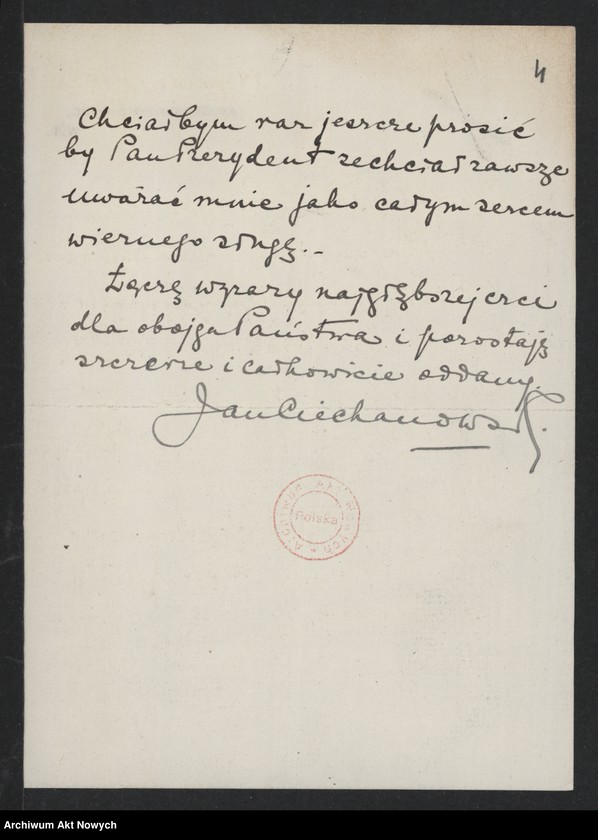 4
Chciałbym raz jeszcze prosić
by Pan Prezydent zechciał zawsze
uważać mnie jako całym sercem
wiernego sługę.-
Łączę wyrazy najgłębszej czci
dla obojga Państwa i pozostaję
szczerze i całkowicie oddany.
Jan Ciechanowski.
Archiwum Akt Nowych *
Polska
Archiwum Akt Nowych